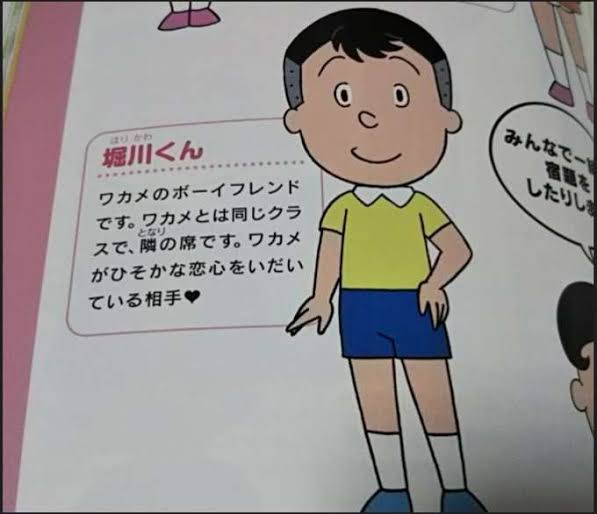 ほり かわ
堀川くん
ワカメのボーイフレンド
です。ワカメとは同じクラ
となり
スで、隣の席です。ワカメ
がひそかな恋心をいだい
ている相手♥
みんなで一
宿題を
したりし